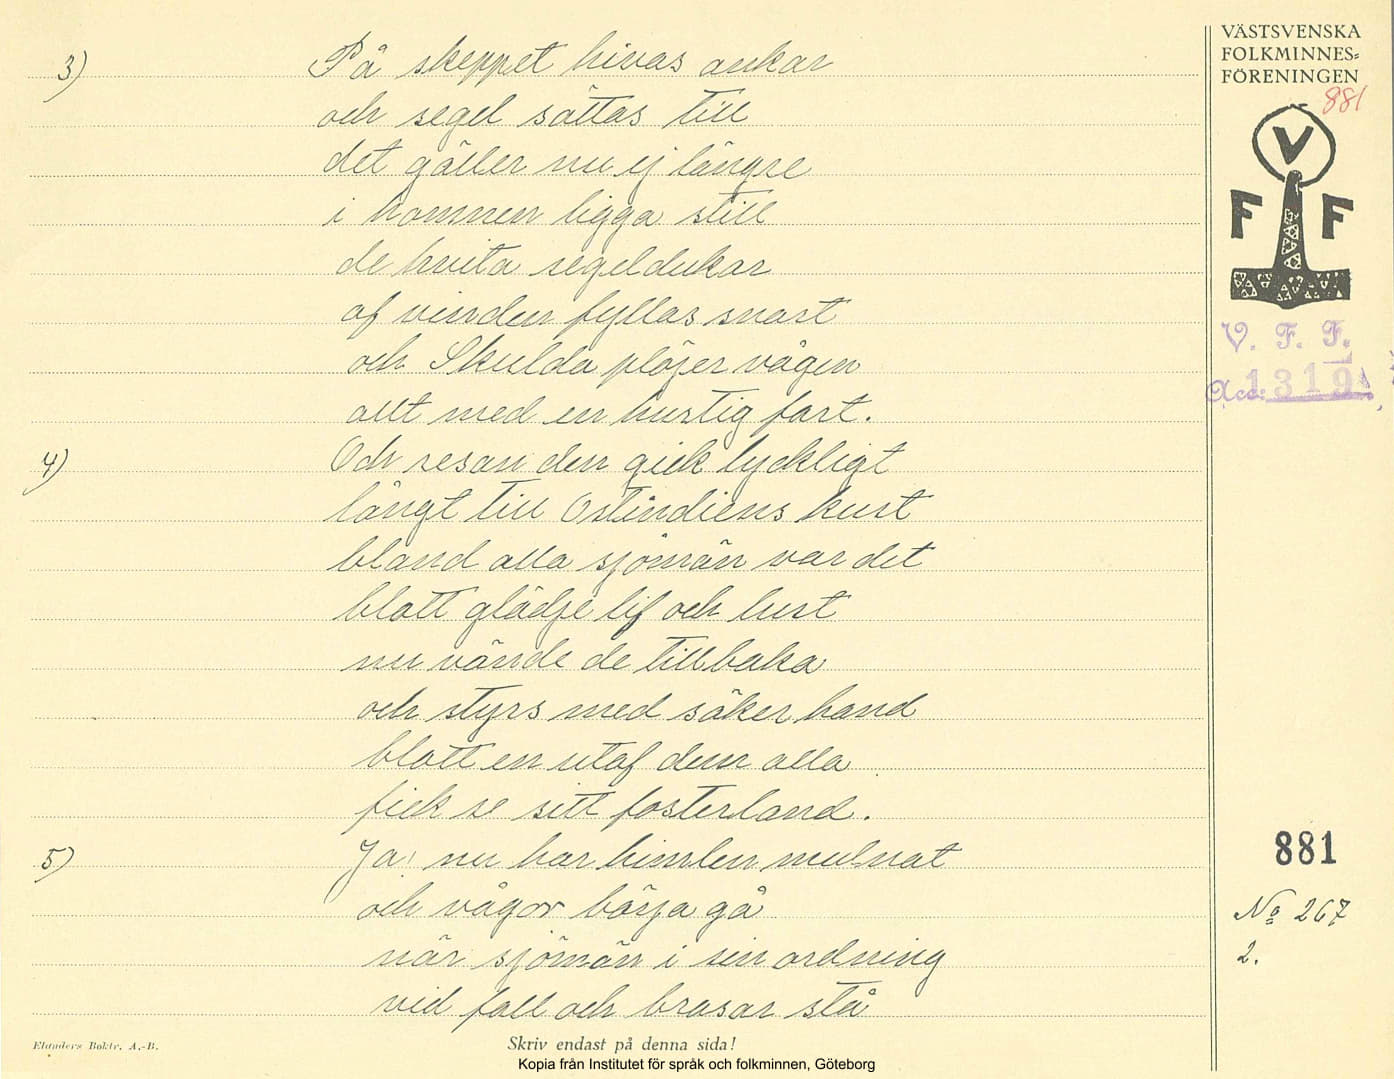 VÄSTSVENSKA
FOLKMINNES-
FÖRENINGEN
881
V
F F
V. F. F.
Acc: 1319
3) På skeppet hivas ankar
och segel sättas till
det gäller nu ej längre
i hamnen ligga still
de hvita segeldukar
af vinden fyllas snart
och Skulda plöjer vågen
allt med en hurtig fart.
4) Och resan den gick lyckligt
långt till Ostindiens kust
bland alla sjömän var det
blott glädje lif och lust
nu vände de tillbaka
och styrs med säker hand
blott en utaf dem alla
fick se sitt fosterland.
5) Ja! nu har himlen mulnat
och vågor börja gå
när sjömän i sin ordning
vid fall och brasar stå
881
No 267
2.
Elanders Boktr. A.-B.
Skriv endast på denna sida!
Kopia från Institutet för språk och folkminnen, Göteborg